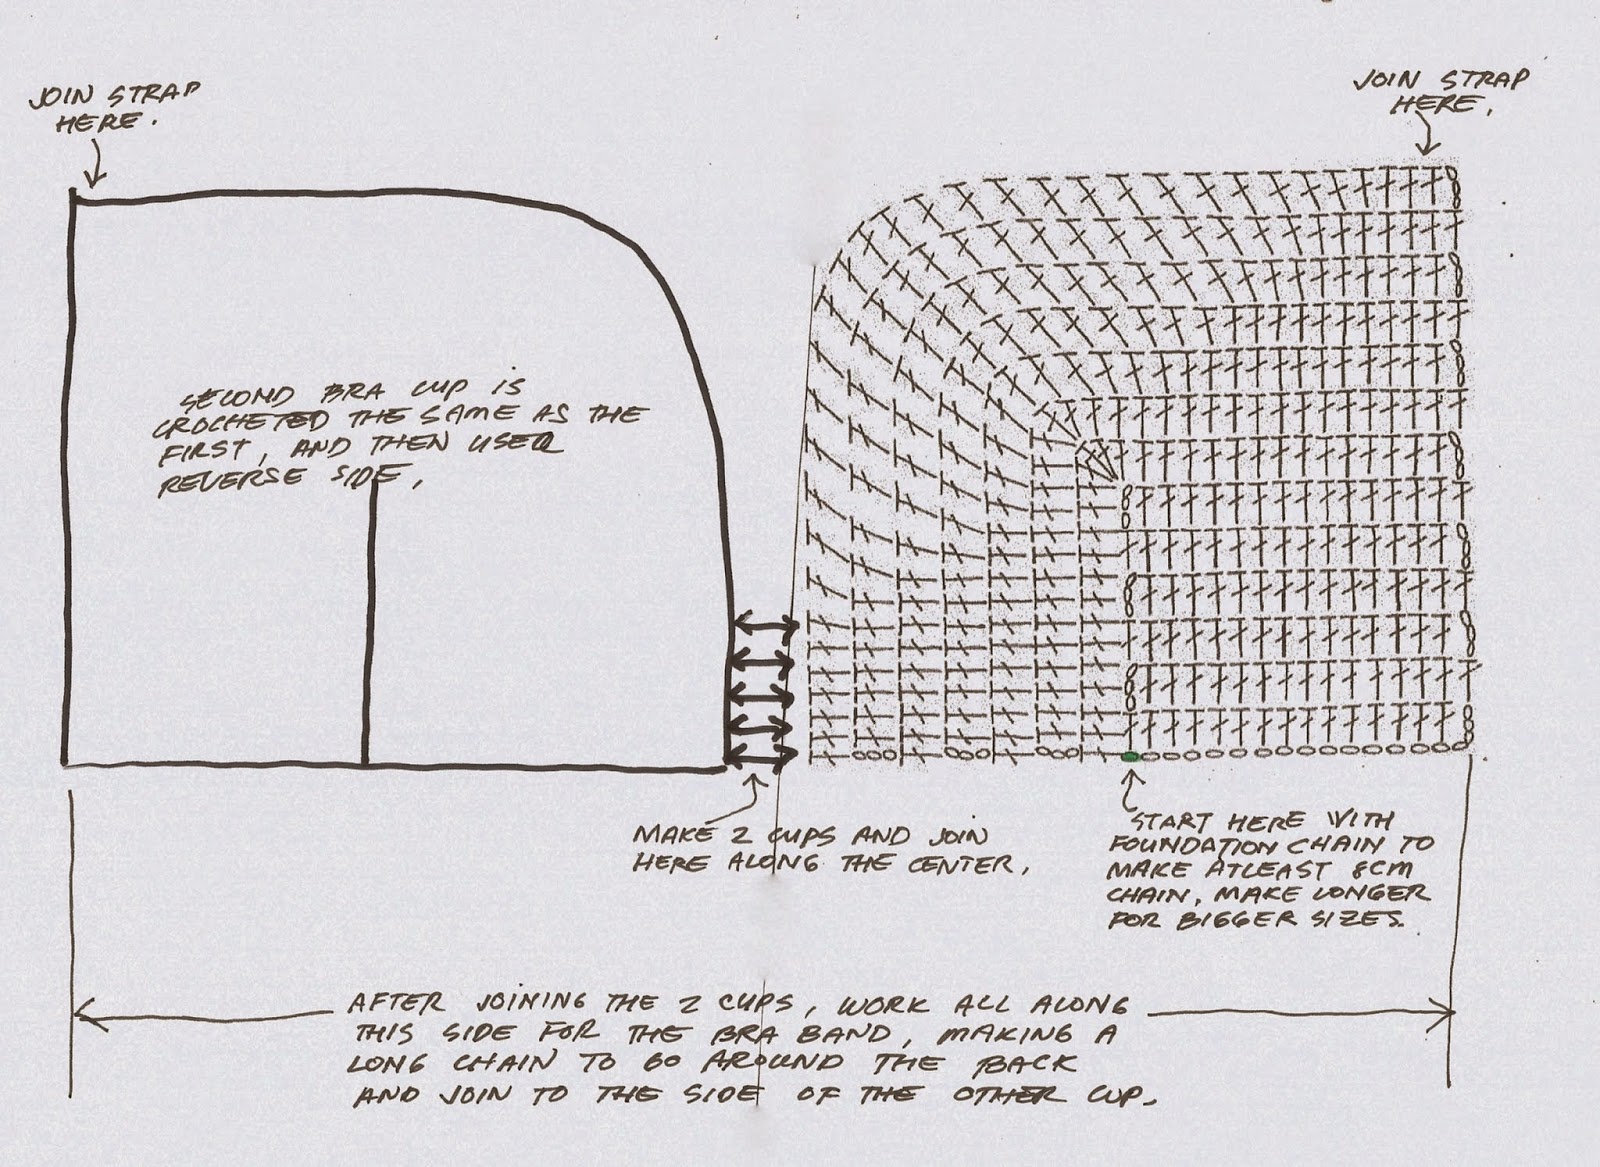 JOIN STRAP
HERE.
JOIN STRAP
HERE,
SECOND BRA CUP IS
CROCHETED THE SAME AS THE
FIRST, AND THEN USED
REVERSE SIDE,
MAKE 2 CUPS AND JOIN
HERE ALONG THE CENTER,
START HERE WITH
FOUNDATION CHAIN TO
MAKE ATLEAST 8CM
CHAIN, MAKE LONGER
FOR BIGGER SIZES.
AFTER JOINING THE 2 CUPS, WORK ALL ALONG
THIS SIDE FOR THE BRA BAND, MAKING A
LONG CHAIN TO GO AROUND THE BACK
AND JOIN TO THE SIDE OF THE OTHER CUP.